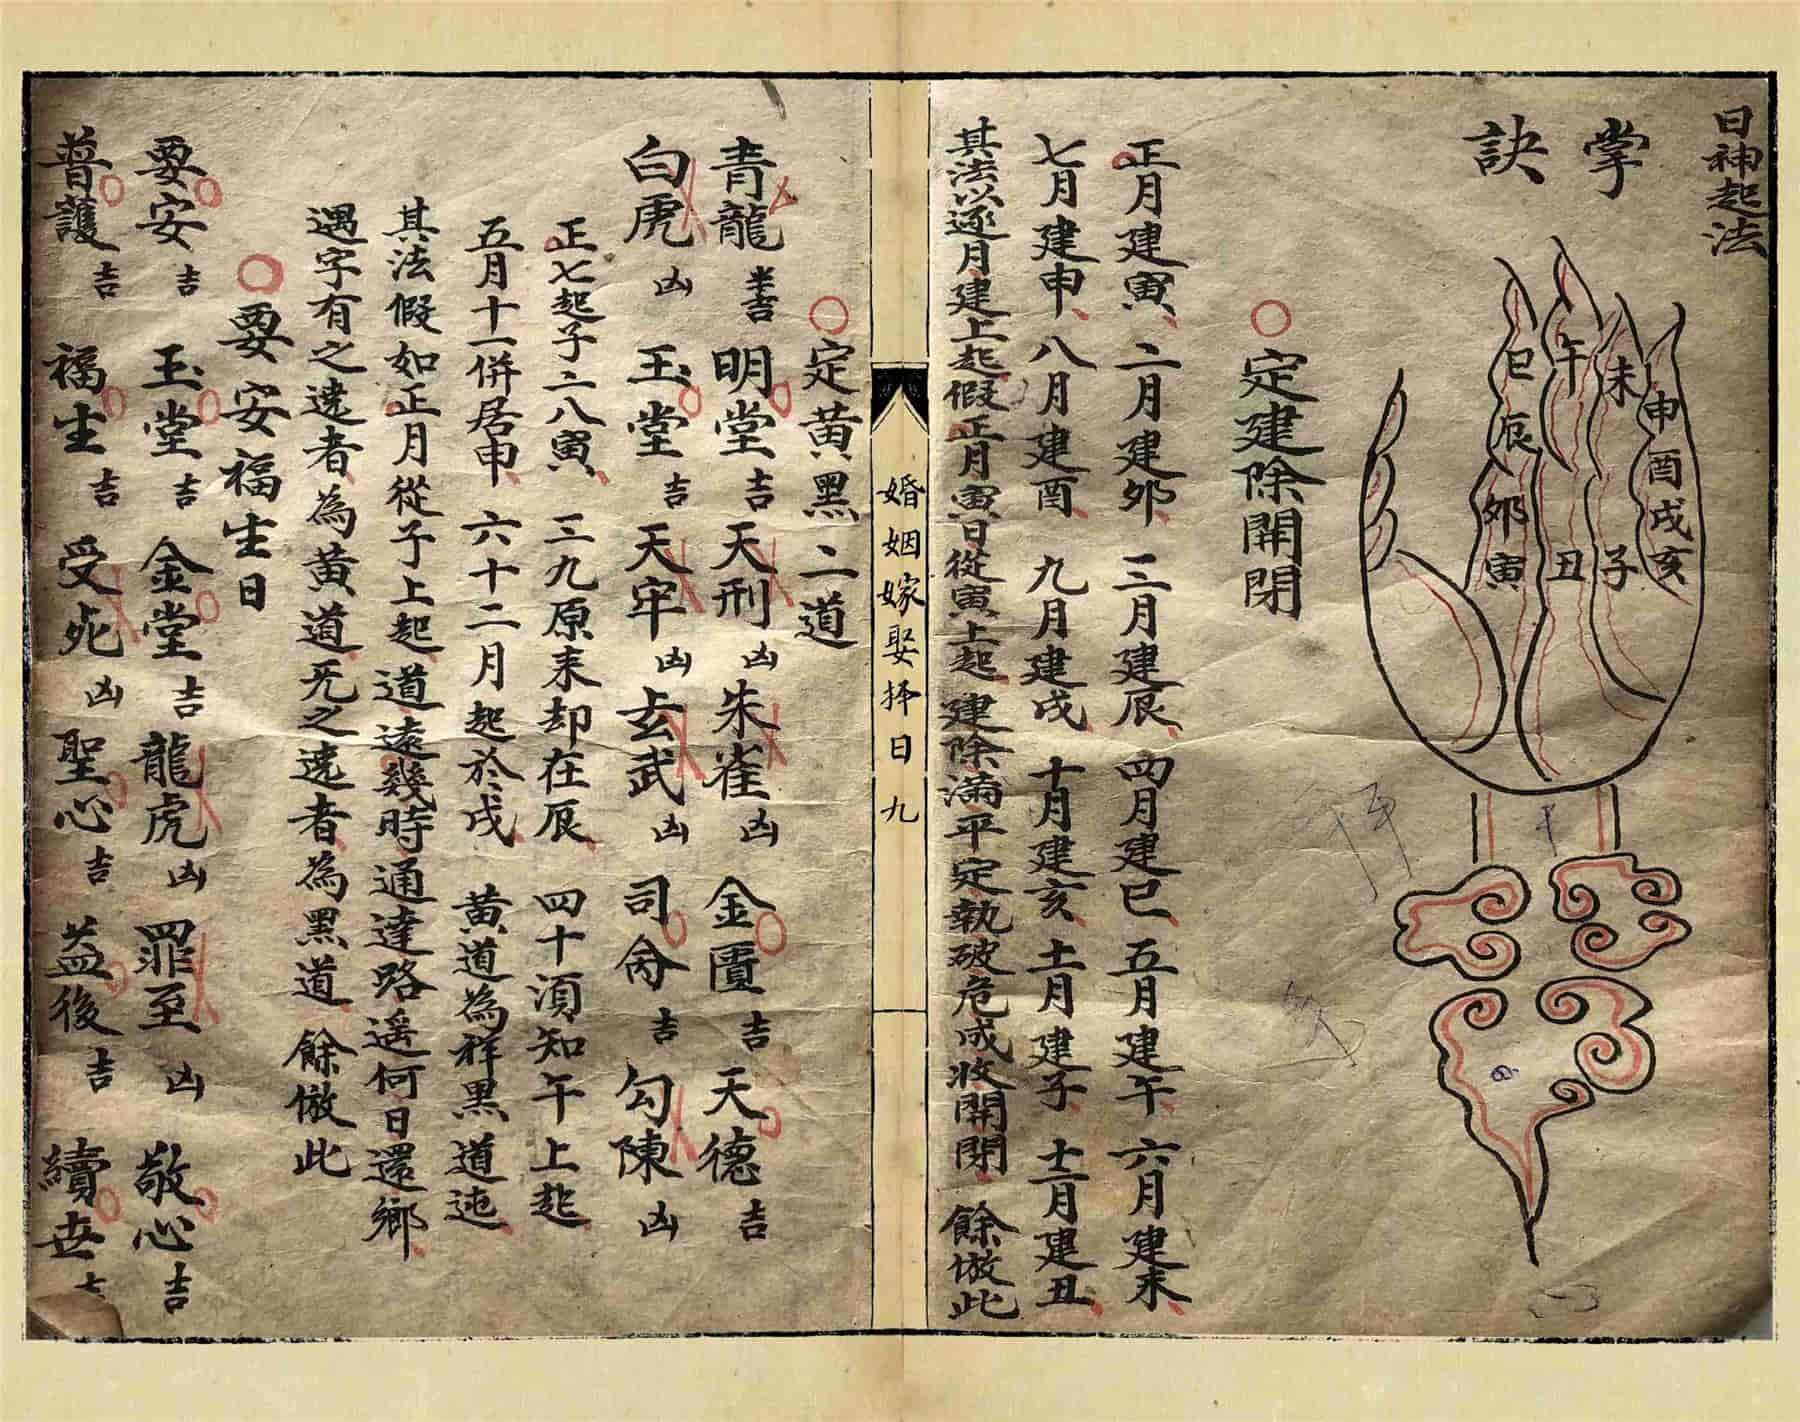 日神起法
掌訣
巳 午 未 申
辰 酉
卯 戌
寅 丑 子 亥
定建除開閉
正月建寅、二月建卯、三月建辰、四月建巳、五月建午、六月建未、
七月建申、八月建酉、九月建戌、十月建亥、十一月建子、十二月建丑、
其法以逐月建上起假正月寅日從寅上起、建除滿平定執破危成收開閉、餘倣此
婚姻嫁娶择日九
定黃黑二道
青龍 半吉 明堂 吉 天刑 凶 朱雀 凶 金匱 吉 天德 吉
白虎 凶 玉堂 吉 天牢 凶 玄武 凶 司命 吉 勾陳 凶
正七起子二八寅、三九原來却在辰、四十須知午上起、
五月十一併居申、六十二月起於戌、黃道為祥黑道迍、
其法假如正月從子上起、道遠幾時通達路遙何日還鄉、
遇字有之遶者、為黃道、无之遶者、為黑道、餘倣此
要安福生日
要安 吉 玉堂 吉 金堂 吉 龍虎 凶 罪至 凶 敬心 吉
普護 吉 福生 吉 受死 凶 聖心 吉 益後 吉 續世 吉